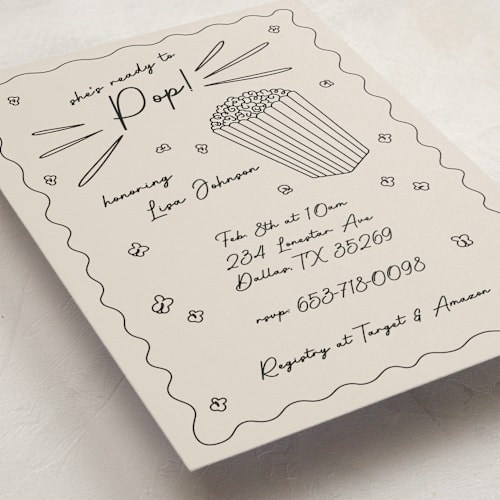 she's ready to
Pop!
honoring
Lisa Johnson
Feb. 8th at 10am
234 Lonestar Ave
Dallas, TX 35269
rsvp: 653-718-0098
Registry at Target & Amazon